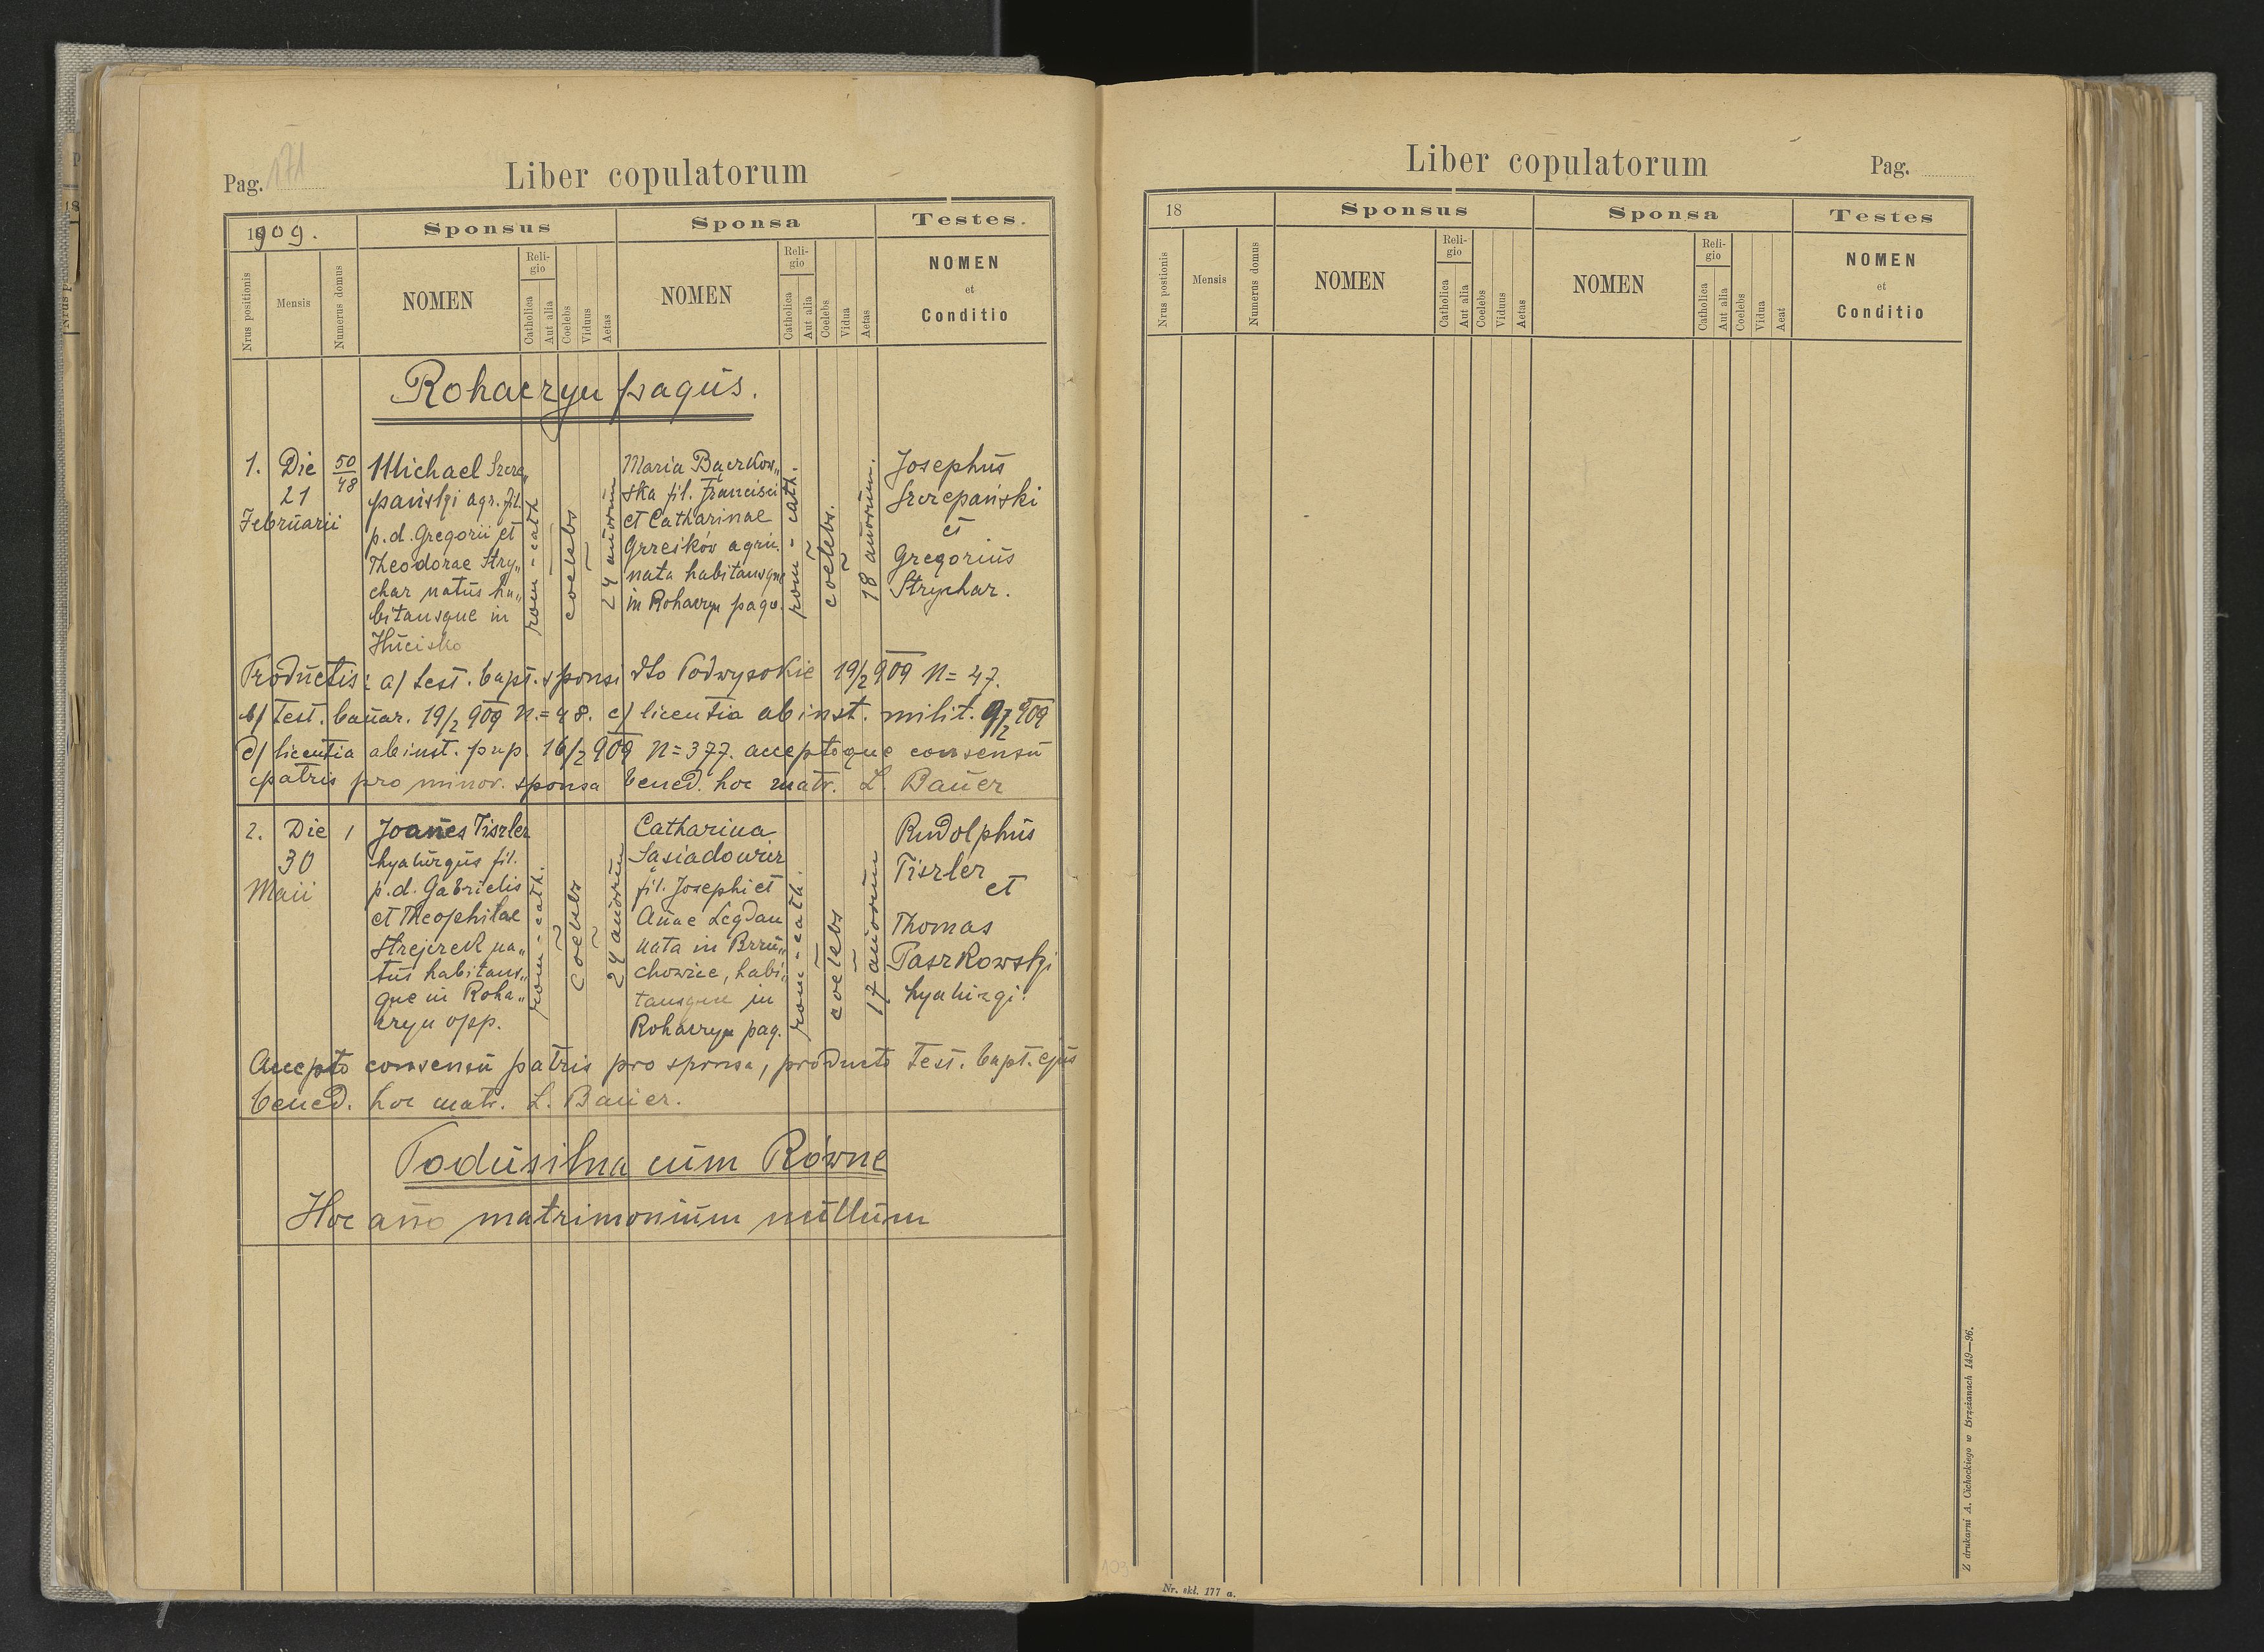 Pag. 171
Liber copulatorum
1909.
Sponsus
Sponsa
Testes.
Nrus positionis
Mensis
Numerus domus
NOMEN
Reli-
gio
Catholica
Aut alia
Coelebs
Viduus
Aetas
NOMEN
Reli-
gio
Catholica
Aut alia
Coelebs
Vidua
Aetas
NOMEN
et
Conditio
Rohaczyn pagus.
1.
Die
21
Februarii
50
48
Michael Szcze„
pański agr. fil.
p. d. Gregorii et
Theodorae Stry„
char natus ha„
bitansque in
Hucisko
rom - cath
coelebs
24 annorum
Maria Bączkow„
ska fil. Francisci
et Catharinae
Grzesików agric.
nata habitansque
in Rohaczyn pago.
rom - cath.
coelebs.
18 annorum.
Josephus
Szczepański
et
Gregorius
Strychar.
Productis: a/ test. bapt. sponsi dto Podwysokie 19/2 909 N= 47.
b/ test. bannor. 19/2 909 N.= 48. c/ licentia ab inst. milit. 9/2 909
d/ licentia ab inst. pup. 16/2 909 N= 377. acceptoque consensu
patris pro minor. sponsa bened. hoc matr. L. Bauer
2.
Die
30
Maii
1
Joannes Tiszler
hyalurgus fil.
p. d. Gabrielis
et Theophilae
Strejczek na„
tus habitans„
que in Roha„
czyn opp.
rom - cath.
coelebs
24 annorum
Catharina
Sąsiadowicz
fil. Josephi et
Annae Legdan
nata in Brzu„
chowice, habi„
tansque in
Rohaczyn pag.
rom - cath.
coelebs
17 annorum
Rudolphus
Tiszler
et
Thomas
Paszkowski
hyalurgi.
Accepto consensu patris pro sponsa, producto test. bapt. ejus
bened. hoc matr. L. Bauer.
Podusilna cum Równe
Hoc anno matrimonium nullum
Liber copulatorum
Pag.
18
Sponsus
Sponsa
Testes
Nrus postionis
Mensis
Numerus domus
NOMEN
Reli-
gio
Catholica
Aut alia
Coelebs
Viduus
Aetas
NOMEN
Reli-
gio
Catholica
Aut alia
Coelebs
Vidua
Aeat
NOMEN
et
Conditio
Z drukarni A. Cichockiego w Brzeżanach 149—96.
103
Nr. skł. 177 a.